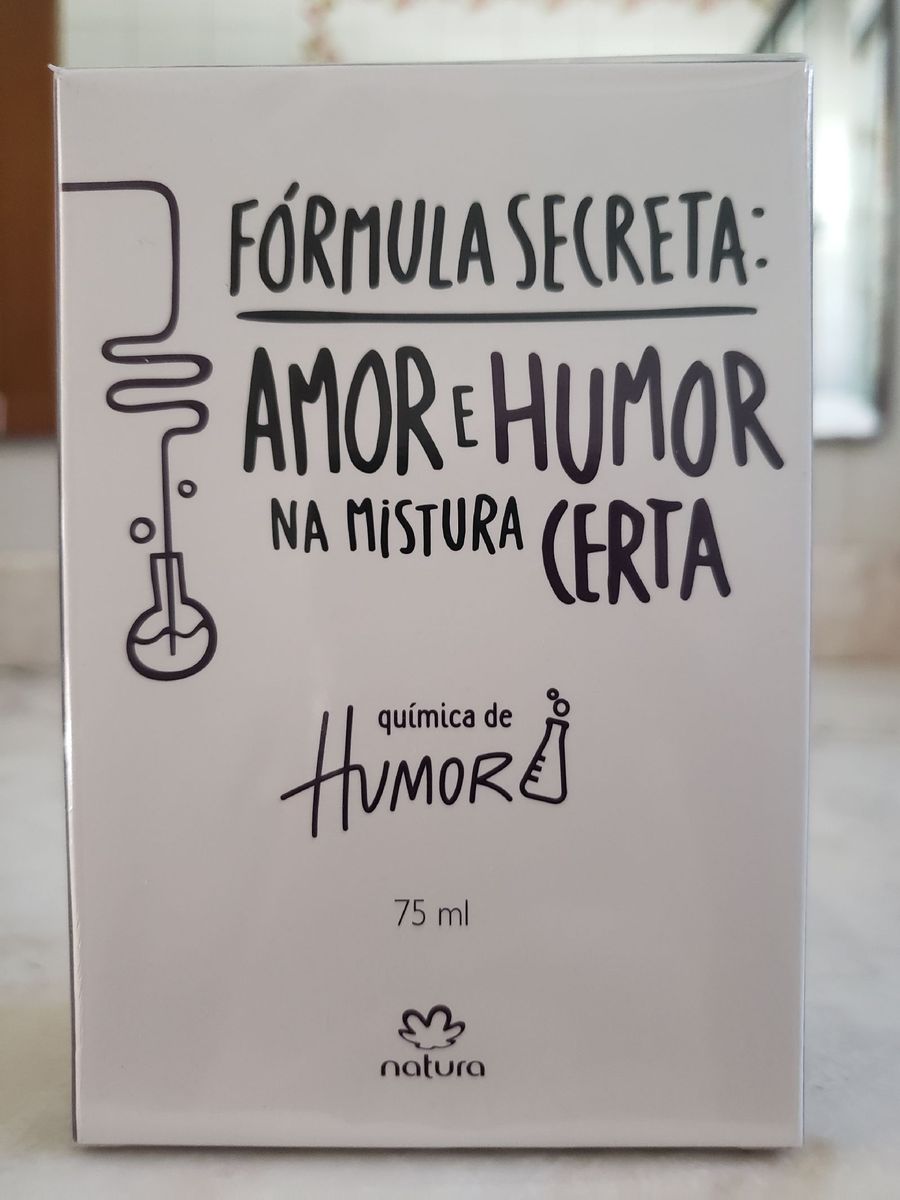 FÓRMULA SECRETA:
AMOR E HUMOR
NA MISTURA CERTA
química de
HUMOR
75 ml
natura